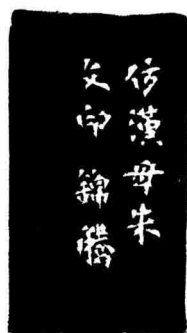 仿漢母朱
文印錦